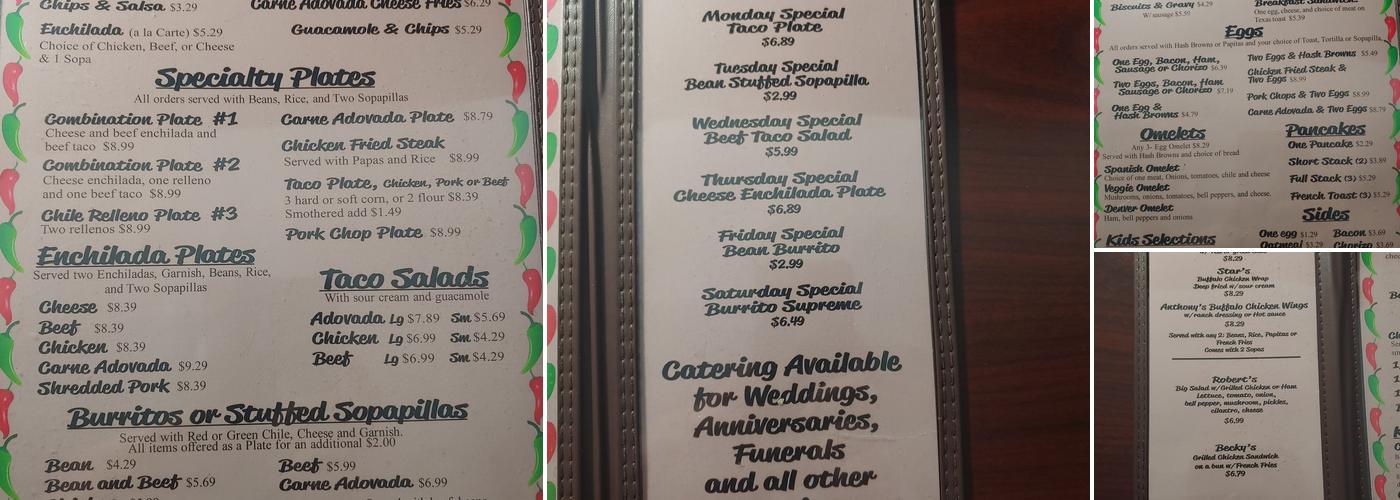 Chips & Salsa $3.29
Carne Adovada Cheese Fries $6.29
Enchilada (a la Carte) $5.29
Choice of Chicken, Beef, or Cheese
& 1 Sopa
Guacamole & Chips $5.29
Specialty Plates
All orders served with Beans, Rice, and Two Sopapillas
Combination Plate #1
Cheese and beef enchilada and
beef taco $8.99
Combination Plate #2
Cheese enchilada, one relleno
and one beef taco $8.99
Chile Relleno Plate #3
Two rellenos $8.99
Carne Adovada Plate $8.79
Chicken Fried Steak
Served with Papas and Rice $8.99
Taco Plate, Chicken, Pork or Beef
3 hard or soft corn, or 2 flour $8.39
Smothered add $1.49
Pork Chop Plate $8.99
Enchilada Plates
Served two Enchiladas, Garnish, Beans, Rice,
and Two Sopapillas
Cheese $8.39
Beef $8.39
Chicken $8.39
Carne Adovada $9.29
Shredded Pork $8.39
Taco Salads
With sour cream and guacamole
Adovada Lg $7.89 Sm $5.69
Chicken Lg $6.99 Sm $4.29
Beef Lg $6.99 Sm $4.29
Burritos or Stuffed Sopapillas
Served with Red or Green Chile, Cheese and Garnish.
All items offered as a Plate for an additional $2.00
Bean $4.29
Bean and Beef $5.69
Beef $5.99
Carne Adovada $6.99
Monday Special
Taco Plate
$6.89
Tuesday Special
Bean Stuffed Sopapilla
$2.99
Wednesday Special
Beef Taco Salad
$5.99
Thursday Special
Cheese Enchilada Plate
$6.89
Friday Special
Bean Burrito
$2.99
Saturday Special
Burrito Supreme
$6.49
Catering Available
for Weddings,
Anniversaries,
Funerals
and all other
Biscuits & Gravy $4.29
W/ sausage $5.59
Breakfast Sandwich
One egg, cheese, and choice of meat on
Texas toast $5.39
Eggs
All orders served with Hash Browns or Papitas and your choice of Toast, Tortilla or Sopapilla.
One Egg, Bacon, Ham,
Sausage or Chorizo $6.39
Two Eggs, Bacon, Ham
Sausage or Chorizo $7.19
One Egg &
Hash Browns $4.79
Two Eggs & Hash Browns $5.49
Chicken Fried Steak &
Two Eggs $8.99
Pork Chops & Two Eggs $8.99
Carne Adovada & Two Eggs $8.79
Omelets
Any 3- Egg Omelet $8.29
Served with Hash Browns and choice of bread
Spanish Omelet
Choice of one meat, Onions, tomatoes, chile and cheese
Veggie Omelet
Mushrooms, onions, tomatoes, bell peppers, and cheese.
Denver Omelet
Ham, bell peppers and onions
Kids Selections
Pancakes
One Pancake $2.29
Short Stack (2) $3.89
Full Stack (3) $5.29
French Toast (3) $5.29
Sides
One egg $1.29
Bacon $3.69
Oatmeal $3.29
Chorizo $3.69
$8.29
Star's
Buffalo Chicken Wrap
Deep fried w/sour cream
$8.29
Anthony's Buffalo Chicken Wings
w/ranch dressing or Hot sauce
$8.29
Served with any 2: Beans, Rice, Papitas or
French Fries
Comes with 2 Sopas
Robert's
Big Salad w/Grilled Chicken or Ham
Lettuce, tomato, onion,
bell pepper, mushroom, pickles,
cilantro, cheese
$6.99
Becky's
Grilled Chicken Sandwich
on a bun w/French Fries
$6.79